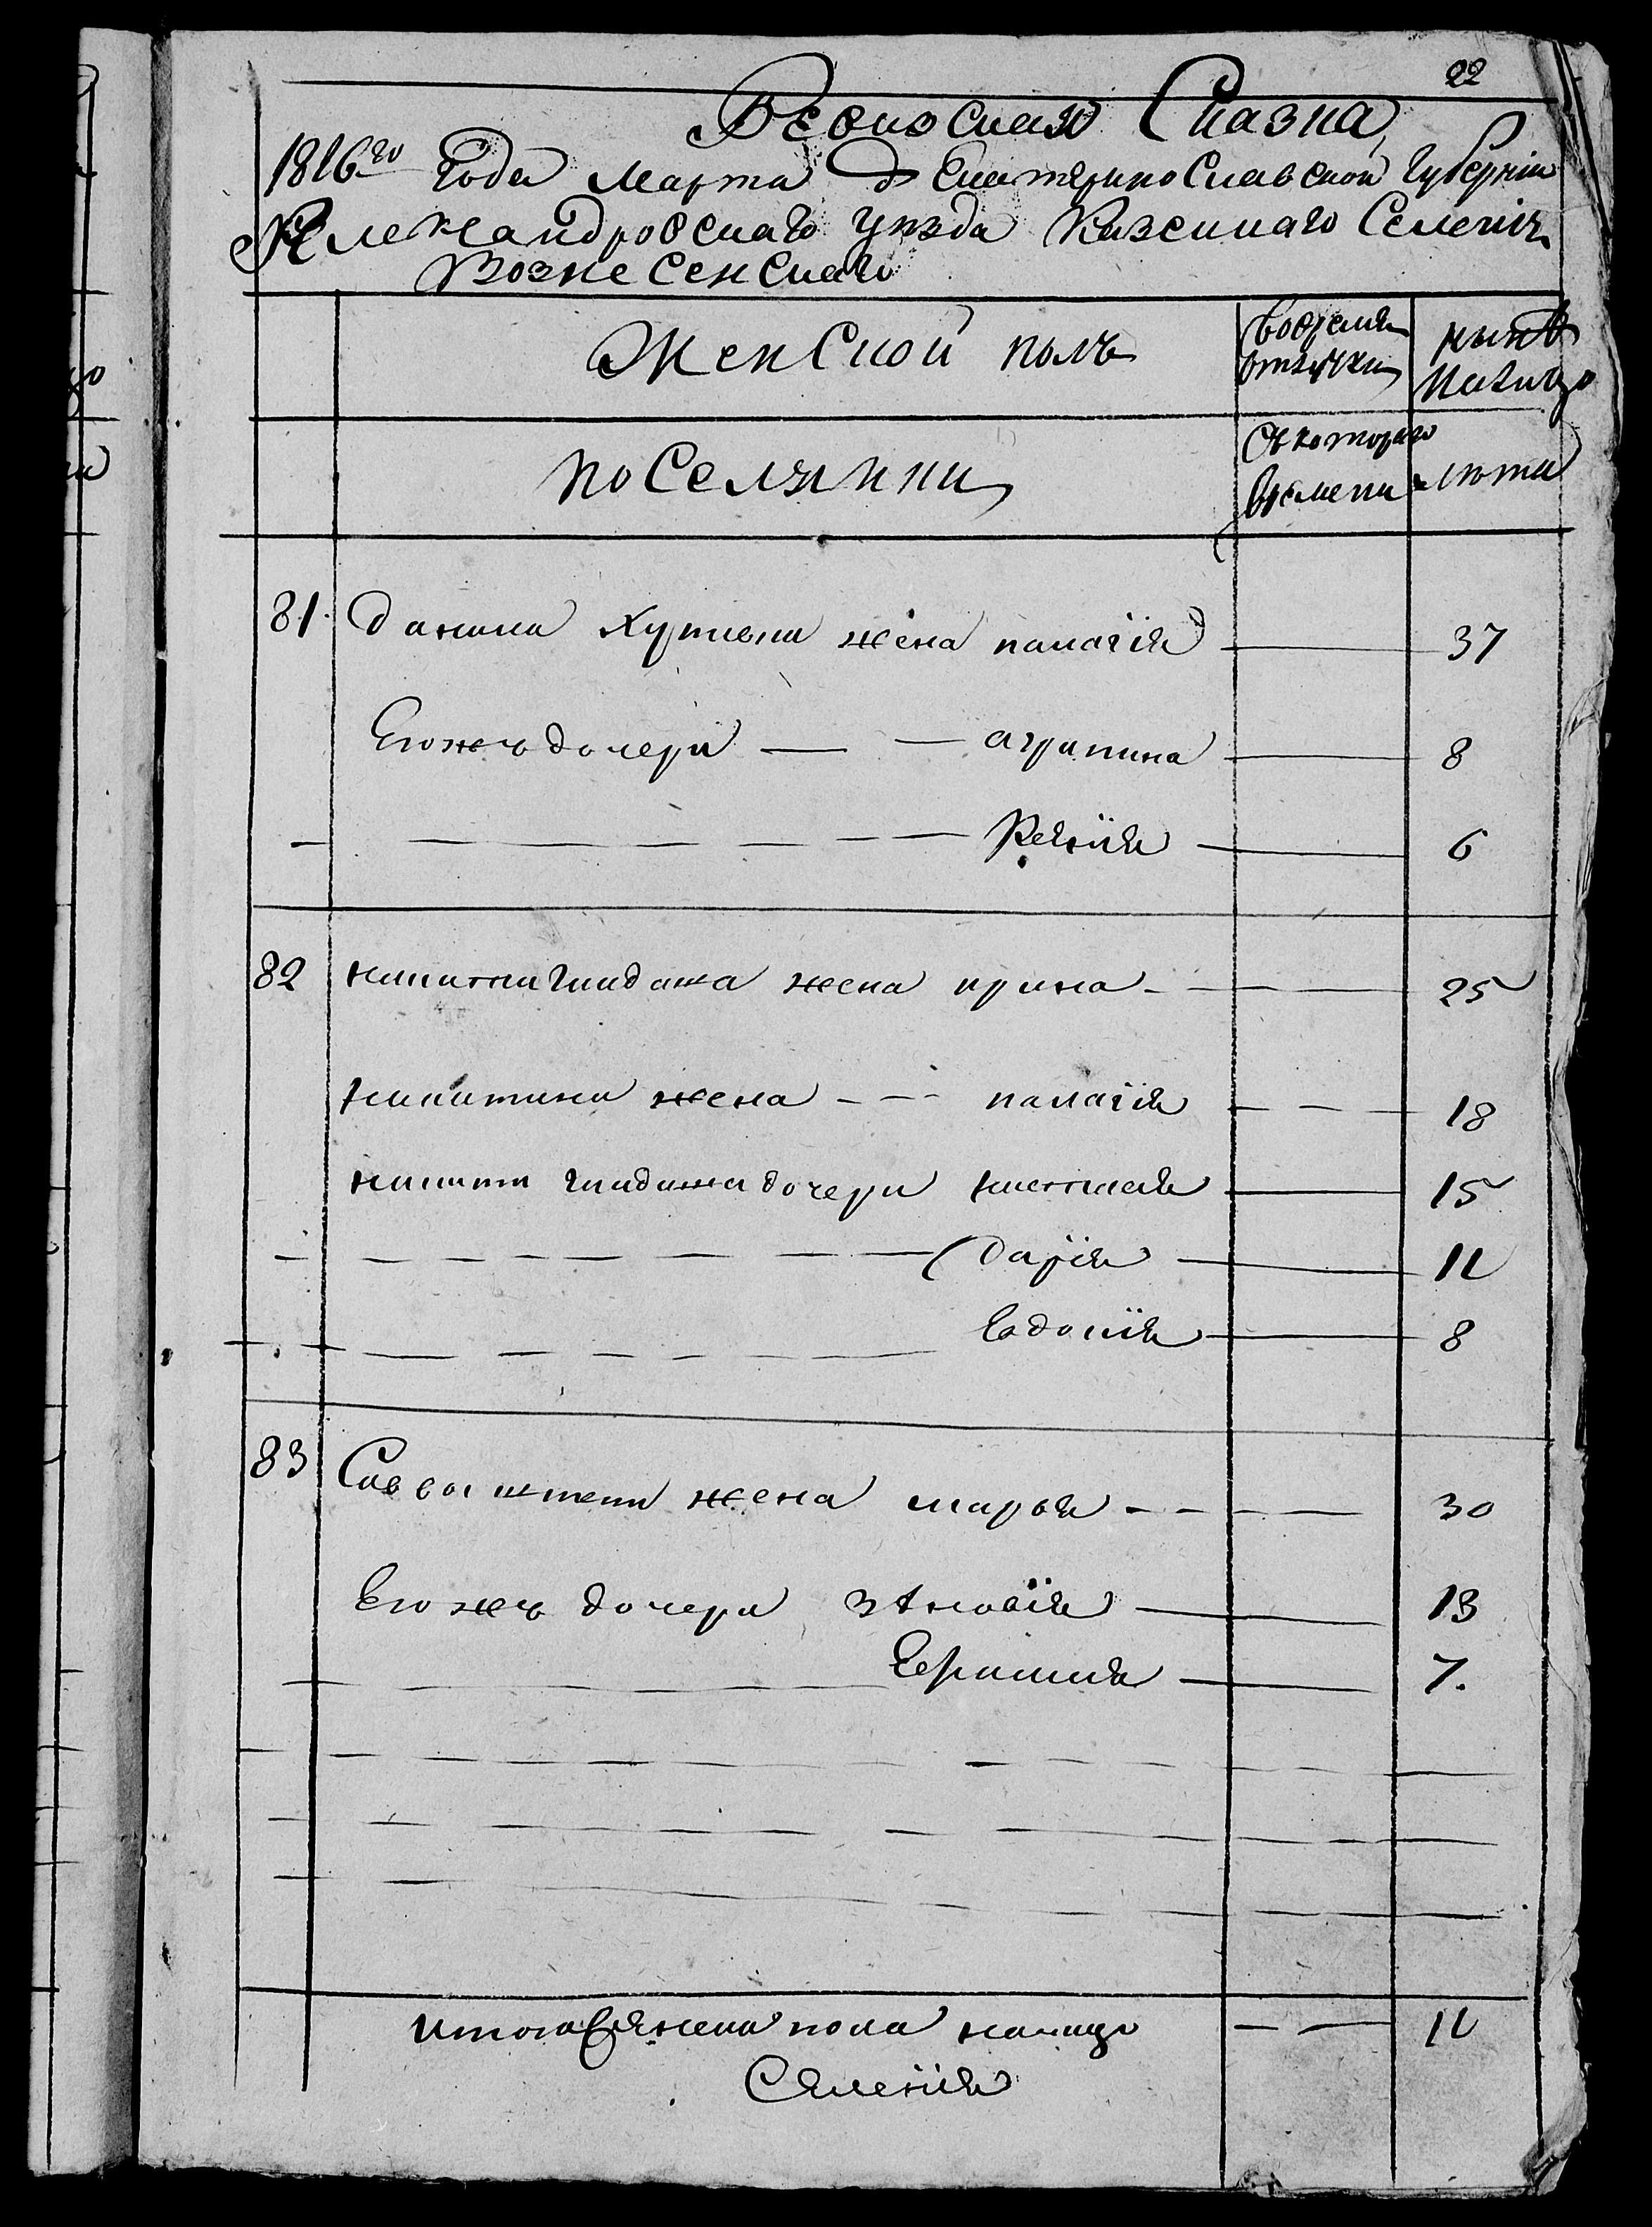 22
Ревизская Сказка,
1816го года марта д Екатеринославской губернии
Александровскаго уезда Казеннаго Селения
Вознесенскаго
Женской полъ
вовремя
отлучки
ныне
налицо
поселянки
Съ котораго
времени
лета
81. данила жена палагия 37
Егожъ дочери агрипина 8
Ксения 6
82 никиты гладкаго жена ирина 25
никитина жена палагия 18
никиты дочери настасия 15
дария 11
Евдокия 8
83 Саввы жена марья 30
Егожъ дочери зѣновия 13
7.
Итого женска пола налицо 11
Селения